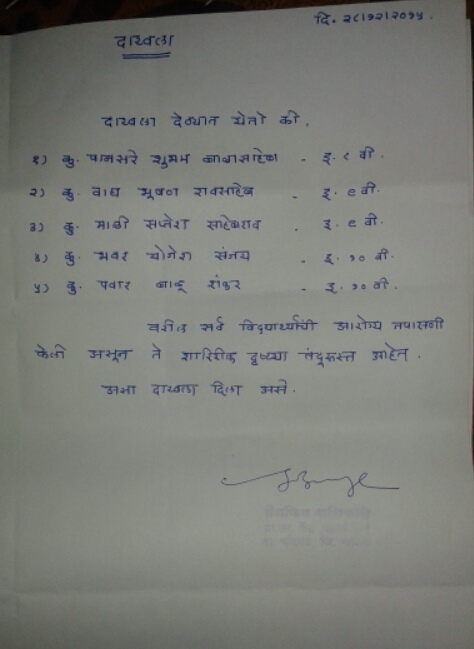 दि. २८।१२।२०१५.
दाखला
दाखला देण्यात येतो की.
१) कु. पानसरे शुभम बाबासाहेब - इ. ८ वी.
२) कु. वाघ भूषण रावसाहेब - इ. ९ वी.
३) कु. माळी राजेश साहेबराव - इ. ९ वी.
४) कु. भवर योगेश संजय - इ. १० वी.
५) कु. पवार बाळू शंकर - इ. १० वी.
वरील सर्व विद्यार्थ्यांची आरोग्य तपासणी
केली असून ते शारिरीक दृष्ट्या तंदुरुस्त आहेत.
असा दाखला दिला असे.